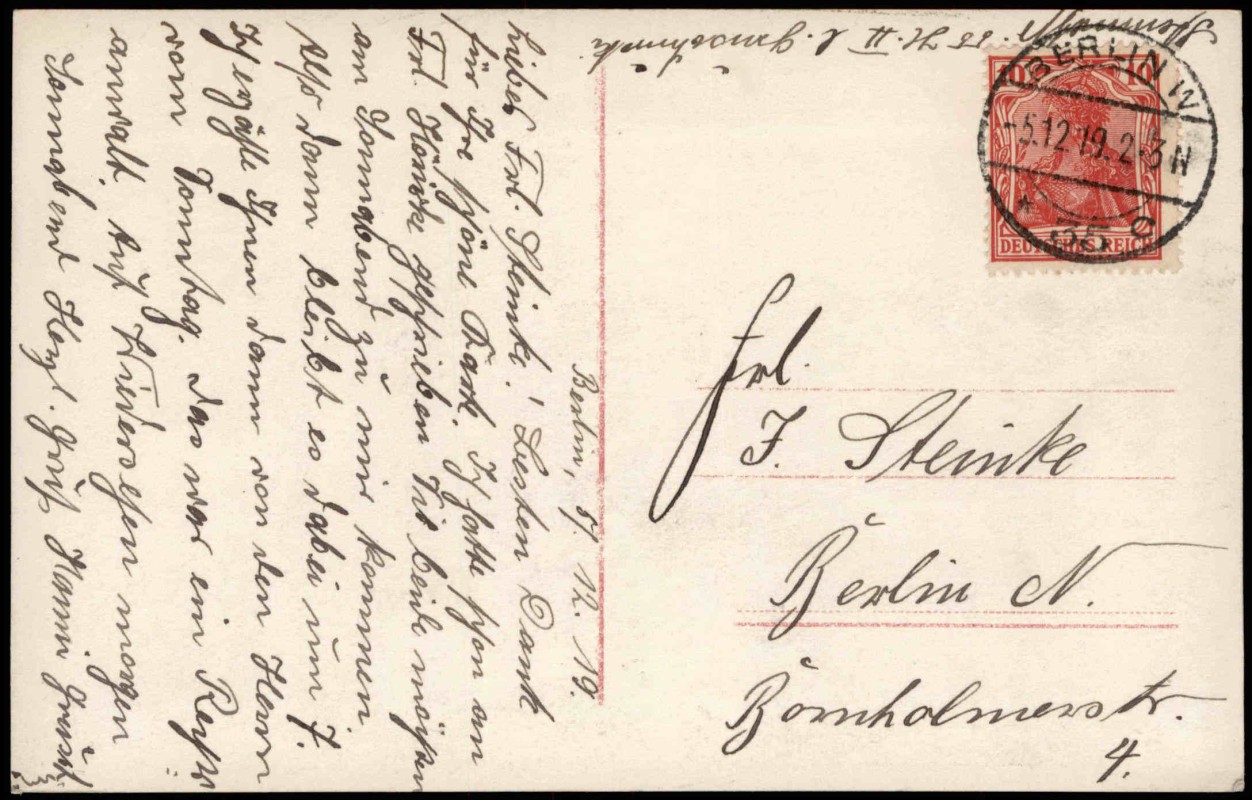 Berlin, 5. 12. 19.
Liebes Frl. Steinke! Besten Dank
für Ihre schöne Karte. Ich hatte schon an
Frl. geschrieben Sie beide möchten
am Sonnabend zu mir kommen
Also dann bleibt es dabei um 7.
Ich erzähle Ihnen dann von den Herrn
vom Sonntag. Das war ein Rechts
anwalt. Auf Wiedersehen morgen
Sonnabend Herzl. Gruß
10 10
DEUTSCHES REICH
BERLIN W
-5.12.19. 2-3 N
* 35 c
Frl.
J. Steinke
Berlin N.
Bornholmerstr.
4.